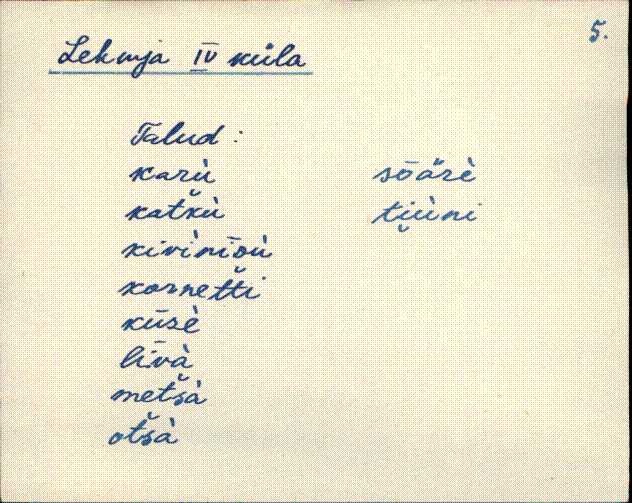 5.
Lekuja IV küla
Talud:
karù
kat̆kù
kivìnīdù
kornet̆ti
kūsè
līvà
met̆sà
ot̆sà
sōärè
ti̮ùni